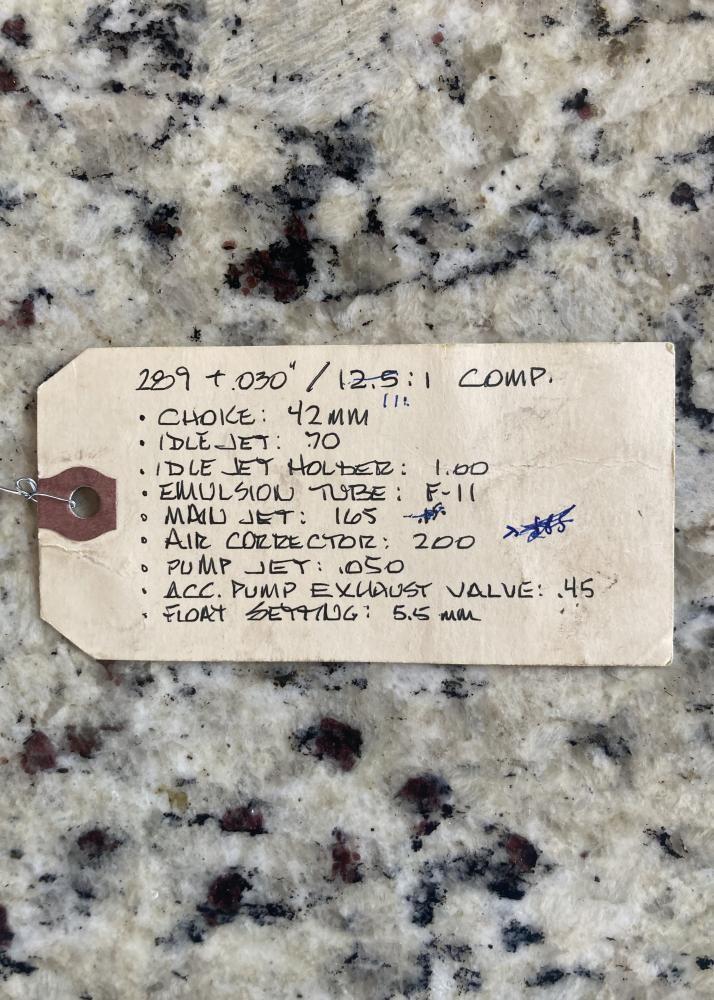 289 + .030" / 12.5:1 COMP.
• CHOKE: 42MM
• IDLE JET: .70
• IDLE JET HOLDER: 1.60
• EMULSION TUBE: F-11
• MAIN JET: 165
• AIR CORRECTOR: 200
• PUMP JET: .050
• ACC. PUMP EXHAUST VALVE: .45
• FLOAT SETTING: 5.5 MM